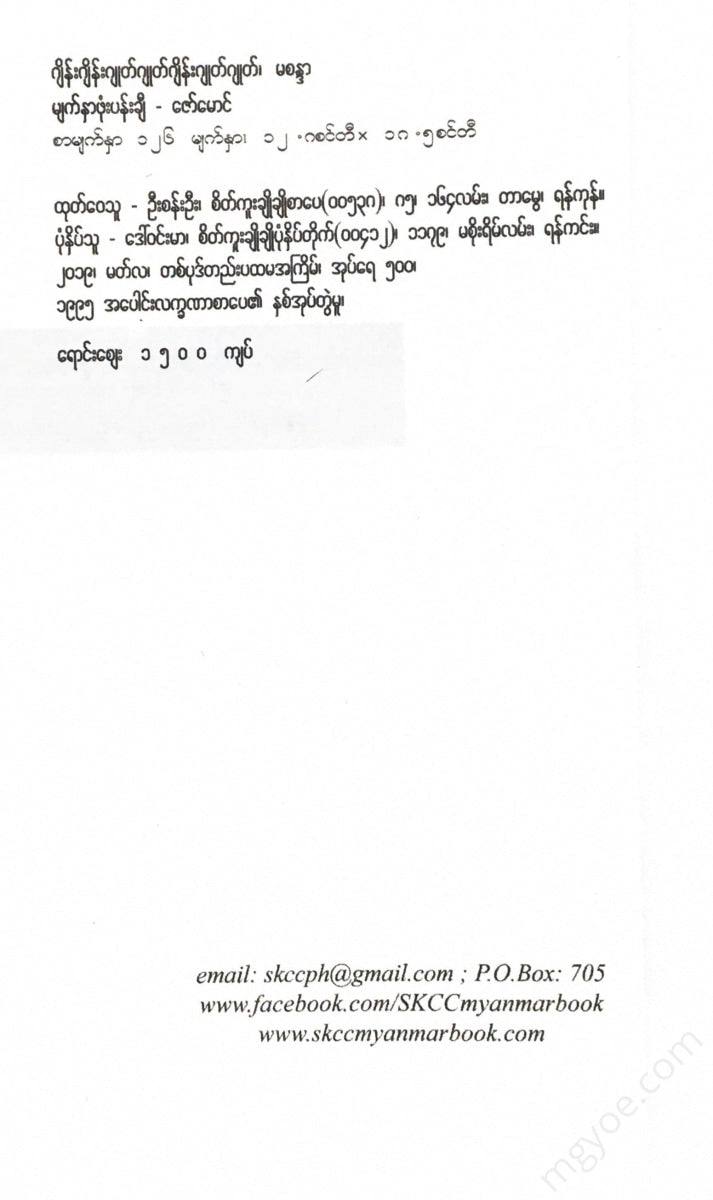 ဂျိန်းဂျိန်းဂျုတ်ဂျုတ်ဂျိန်းဂျုတ်ဂျုတ်၊ မစန္ဒာ
မျက်နှာဖုံးပန်းချီ - ဇော်မောင်
စာမျက်နှာ ၁၂၆ မျက်နှာ၊ ၁၂ .၈စင်တီ× ၁၈ .၅စင်တီ
ထုတ်ဝေသူ - ဦးစန်းဦး၊ စိတ်ကူးချိုချိုစာပေ(၀၀၅၃၈)၊ ၈၅၊ ၁၆၄လမ်း၊ တာမွေ၊ ရန်ကုန်။
ပုံနှိပ်သူ - ဒေါ်ဝင်းမာ၊ စိတ်ကူးချိုချိုပုံနှိပ်တိုက်(၀၀၄၁၂)၊ ၁၁၇၉၊ မစိုးရိမ်လမ်း၊ ရန်ကင်း။
၂၀၁၉၊ မတ်လ၊ တစ်ပုဒ်တည်းပထမအကြိမ်၊ အုပ်ရေ ၅၀၀၊
၁၉၉၅ အပေါင်းလက္ခဏာစာပေ၏ နှစ်အုပ်တွဲမူ၊
ရောင်းဈေး ၁၅၀၀ ကျပ်
email: skccph@gmail.com ; P.O.Box: 705
www.facebook.com/SKCCmyanmarbook
www.skccmyanmarbook.com
mgyoe.com